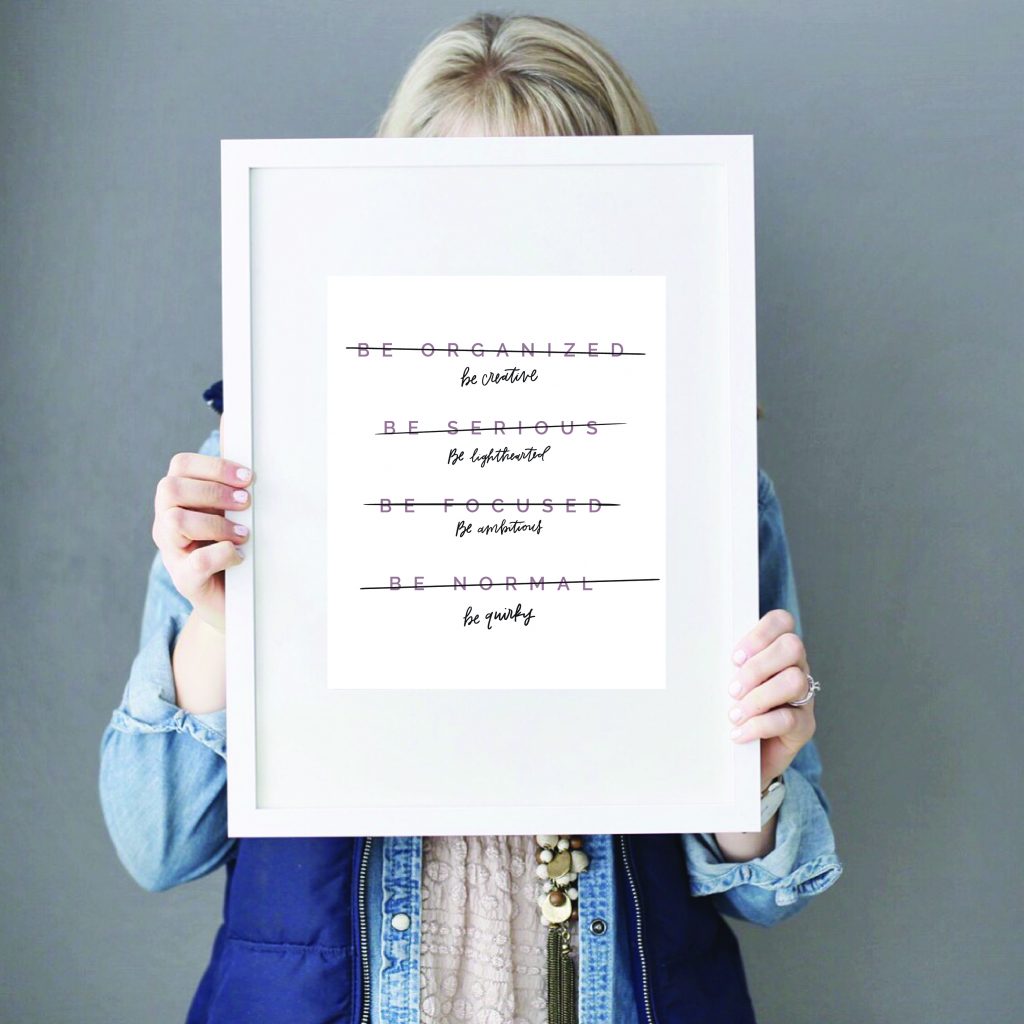 BE ORGANIZED
be creative
BE SERIOUS
Be lighthearted
BE FOCUSED
Be ambitious
BE NORMAL
be quirky